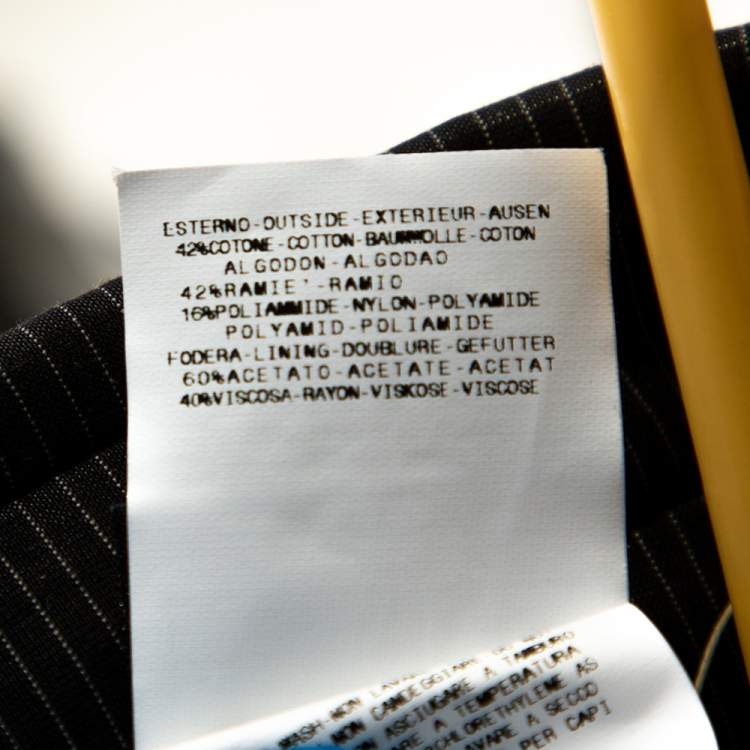 ESTERNO-OUTSIDE-EXTERIEUR-AUSEN
42%COTONE-COTTON-BAUMWOLLE-COTON
ALGODON-ALGODAO
42%RAMIE'-RAMIO
16%POLIAMMIDE-NYLON-POLYAMIDE
POLYAMID-POLIAMIDE
FODERA-LINING-DOUBLURE-GEFUTTER
60%ACETATO-ACETATE-ACETAT
40%VISCOSA-RAYON-VISKOSE-VISCOSE
NON CANDEGGIARE
ASCIUGARE A TAMBURO
A TEMPERATURA
RCHLORETHYLENE AS
LAVARE A SECCO
PER CAPI